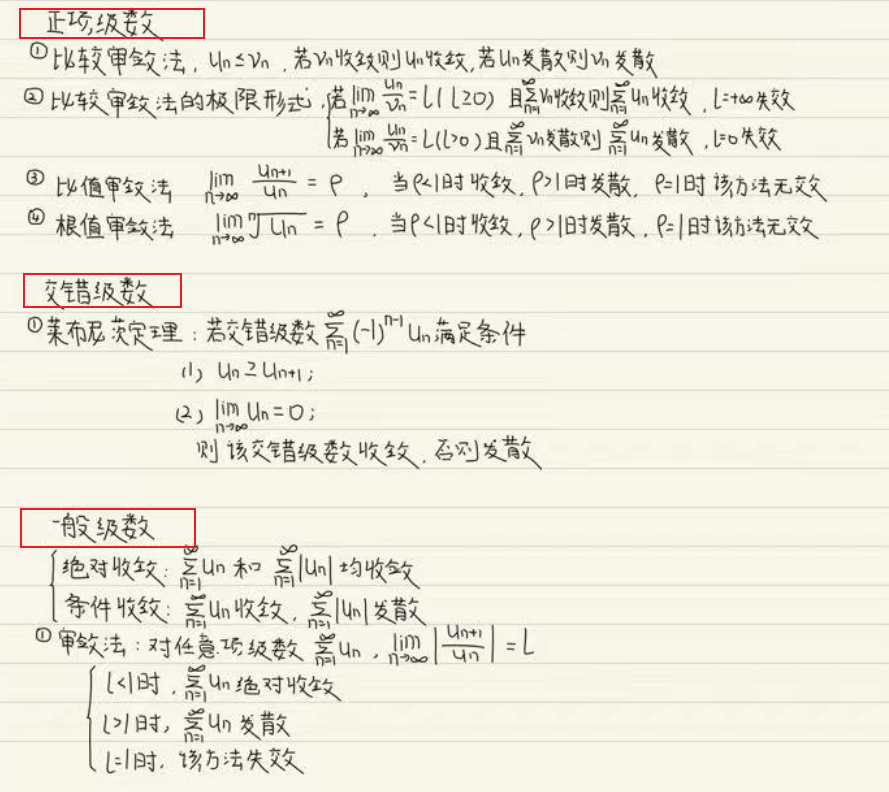 正项级数
①比较审敛法, Un≤Vn, 若Vn收敛则Un收敛, 若Un发散则Vn发散
②比较审敛法的极限形式, {若lim n→∞ Un/Vn=l(l≥0) 且∑n=1 ∞ Vn收敛则∑n=1 ∞ Un收敛, l=+∞失效
若lim n→∞ Un/Vn=l(l>0)且∑n=1 ∞ Vn发散则∑n=1 ∞ Un发散, l=0失效
③比值审敛法 lim n→∞ Un+1/Un=ρ, 当ρ<1时收敛, ρ>1时发散, ρ=1时该方法无效
④根值审敛法 lim n→∞ ⁿ√Un=ρ, 当ρ<1时收敛, ρ>1时发散, ρ=1时该方法无效
交错级数
①莱布尼茨定理: 若交错级数∑n=1 ∞ (-1)ⁿ⁻¹Un满足条件
(1) Un≥Un+1;
(2) lim n→∞ Un=0;
则该交错级数收敛, 否则发散
一般级数
{绝对收敛: ∑n=1 ∞ Un和∑n=1 ∞ |Un|均收敛
条件收敛: ∑n=1 ∞ Un收敛, ∑n=1 ∞ |Un|发散
①审敛法: 对任意项级数∑n=1 ∞ Un, lim n→∞ |Un+1/Un|=l
{l<1时, ∑n=1 ∞ Un绝对收敛
l>1时, ∑n=1 ∞ Un发散
l=1时, 该方法失效